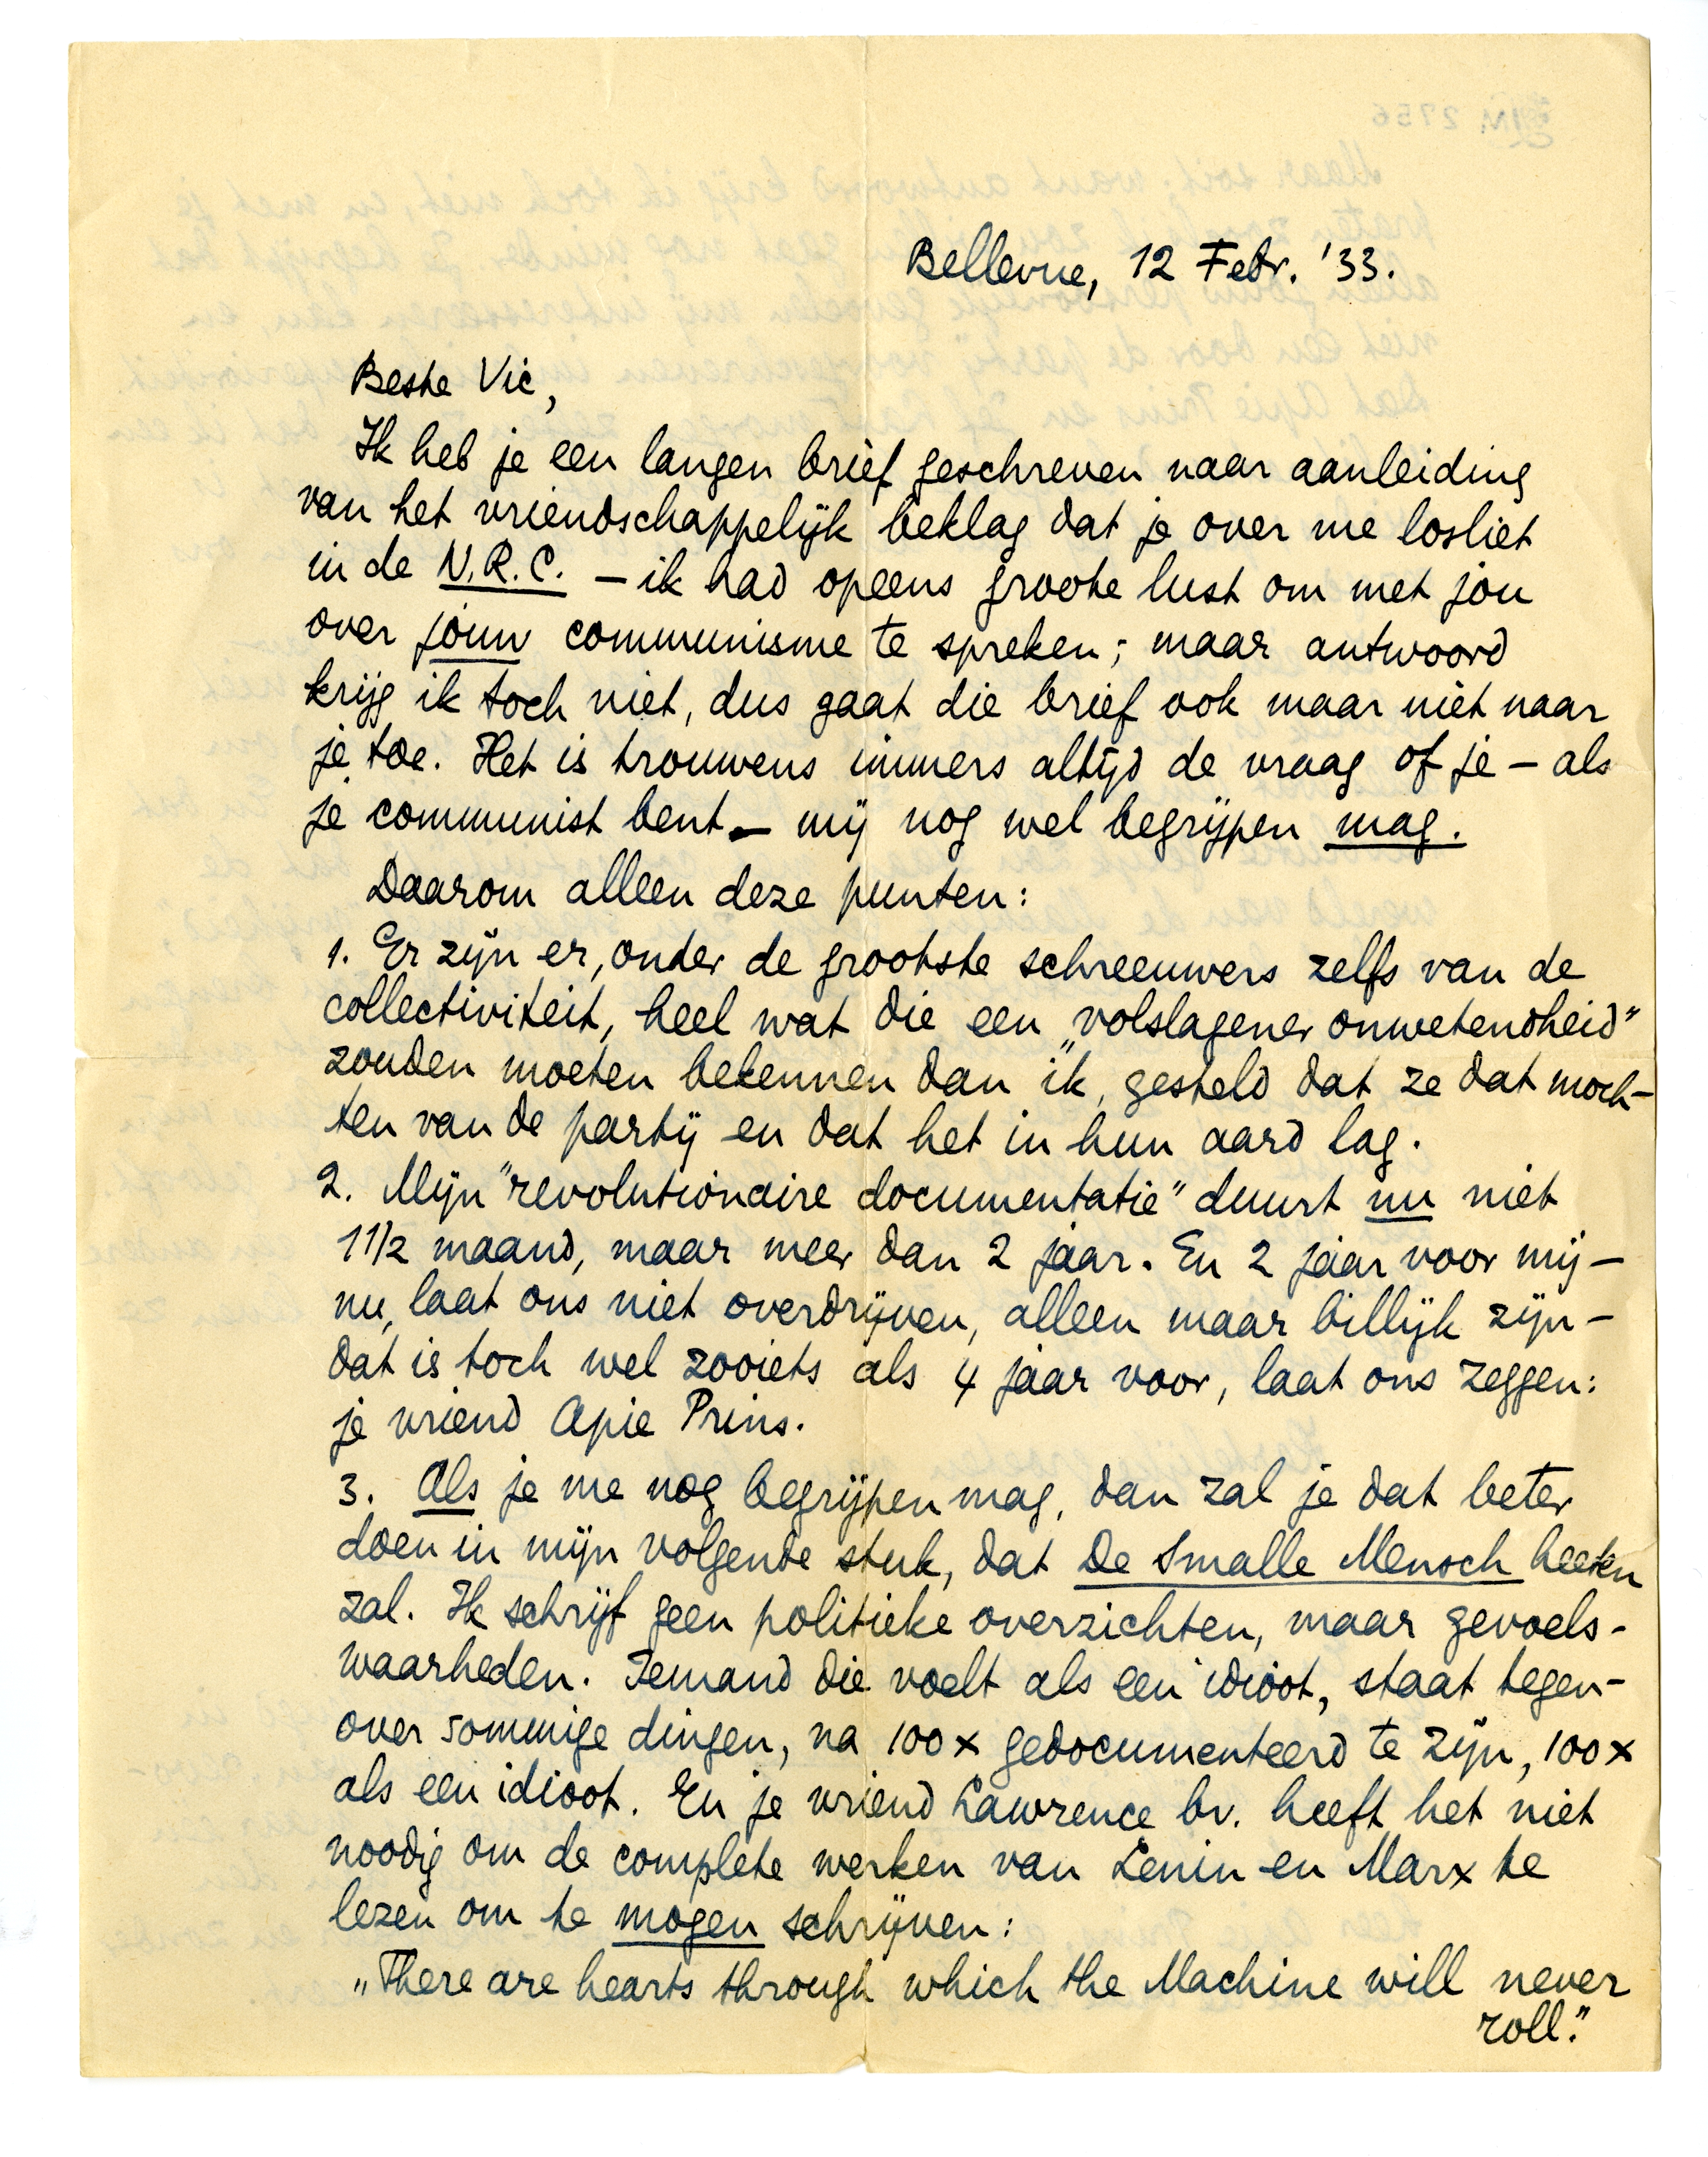 Bellevue, 12 Febr. '33.
Beste Vic,
Ik heb je een langen brief geschreven naar aanleiding
van het vriendschappelijk beklag dat je over me losliet
in de N.R.C. – ik had opeens groote lust om met jou
over jouw communisme te spreken; maar antwoord
krijg ik toch niet, dus gaat die brief ook maar niet naar
je toe. Het is trouwens immers altijd de vraag of je – als
je communist bent – mij nog wel begrijpen mag.
Daarom alleen deze punten:
1. Er zijn er, onder de grootste schreeuwers zelfs van de
collectiviteit, heel wat die een „volslagener onwetendheid"
zouden moeten bekennen dan ik, gesteld dat ze dat moch-
ten van de partij en dat het in hun aard lag.
2. Mijn "revolutionaire documentatie" duurt nu niet
1 1/2 maand, maar meer dan 2 jaar. En 2 jaar voor mij –
nu, laat ons niet overdrijven, alleen maar billijk zijn –
dat is toch wel zooiets als 4 jaar voor, laat ons zeggen:
je vriend Apie Prins.
3. Als je me nog begrijpen mag, dan zal je dat beter
doen in mijn volgende stuk, dat De Smalle Mensch heeten
zal. Ik schrijf geen politieke overzichten, maar gevoels-
waarheden. Iemand die voelt als een idioot, staat tegen-
over sommige dingen, na 100 x gedocumenteerd te zijn, 100 x
als een idioot. En je vriend Lawrence bv. heeft het niet
noodig om de complete werken van Lenin en Marx te
lezen om te mogen schrijven:
„There are hearts through which the Machine will never
roll."